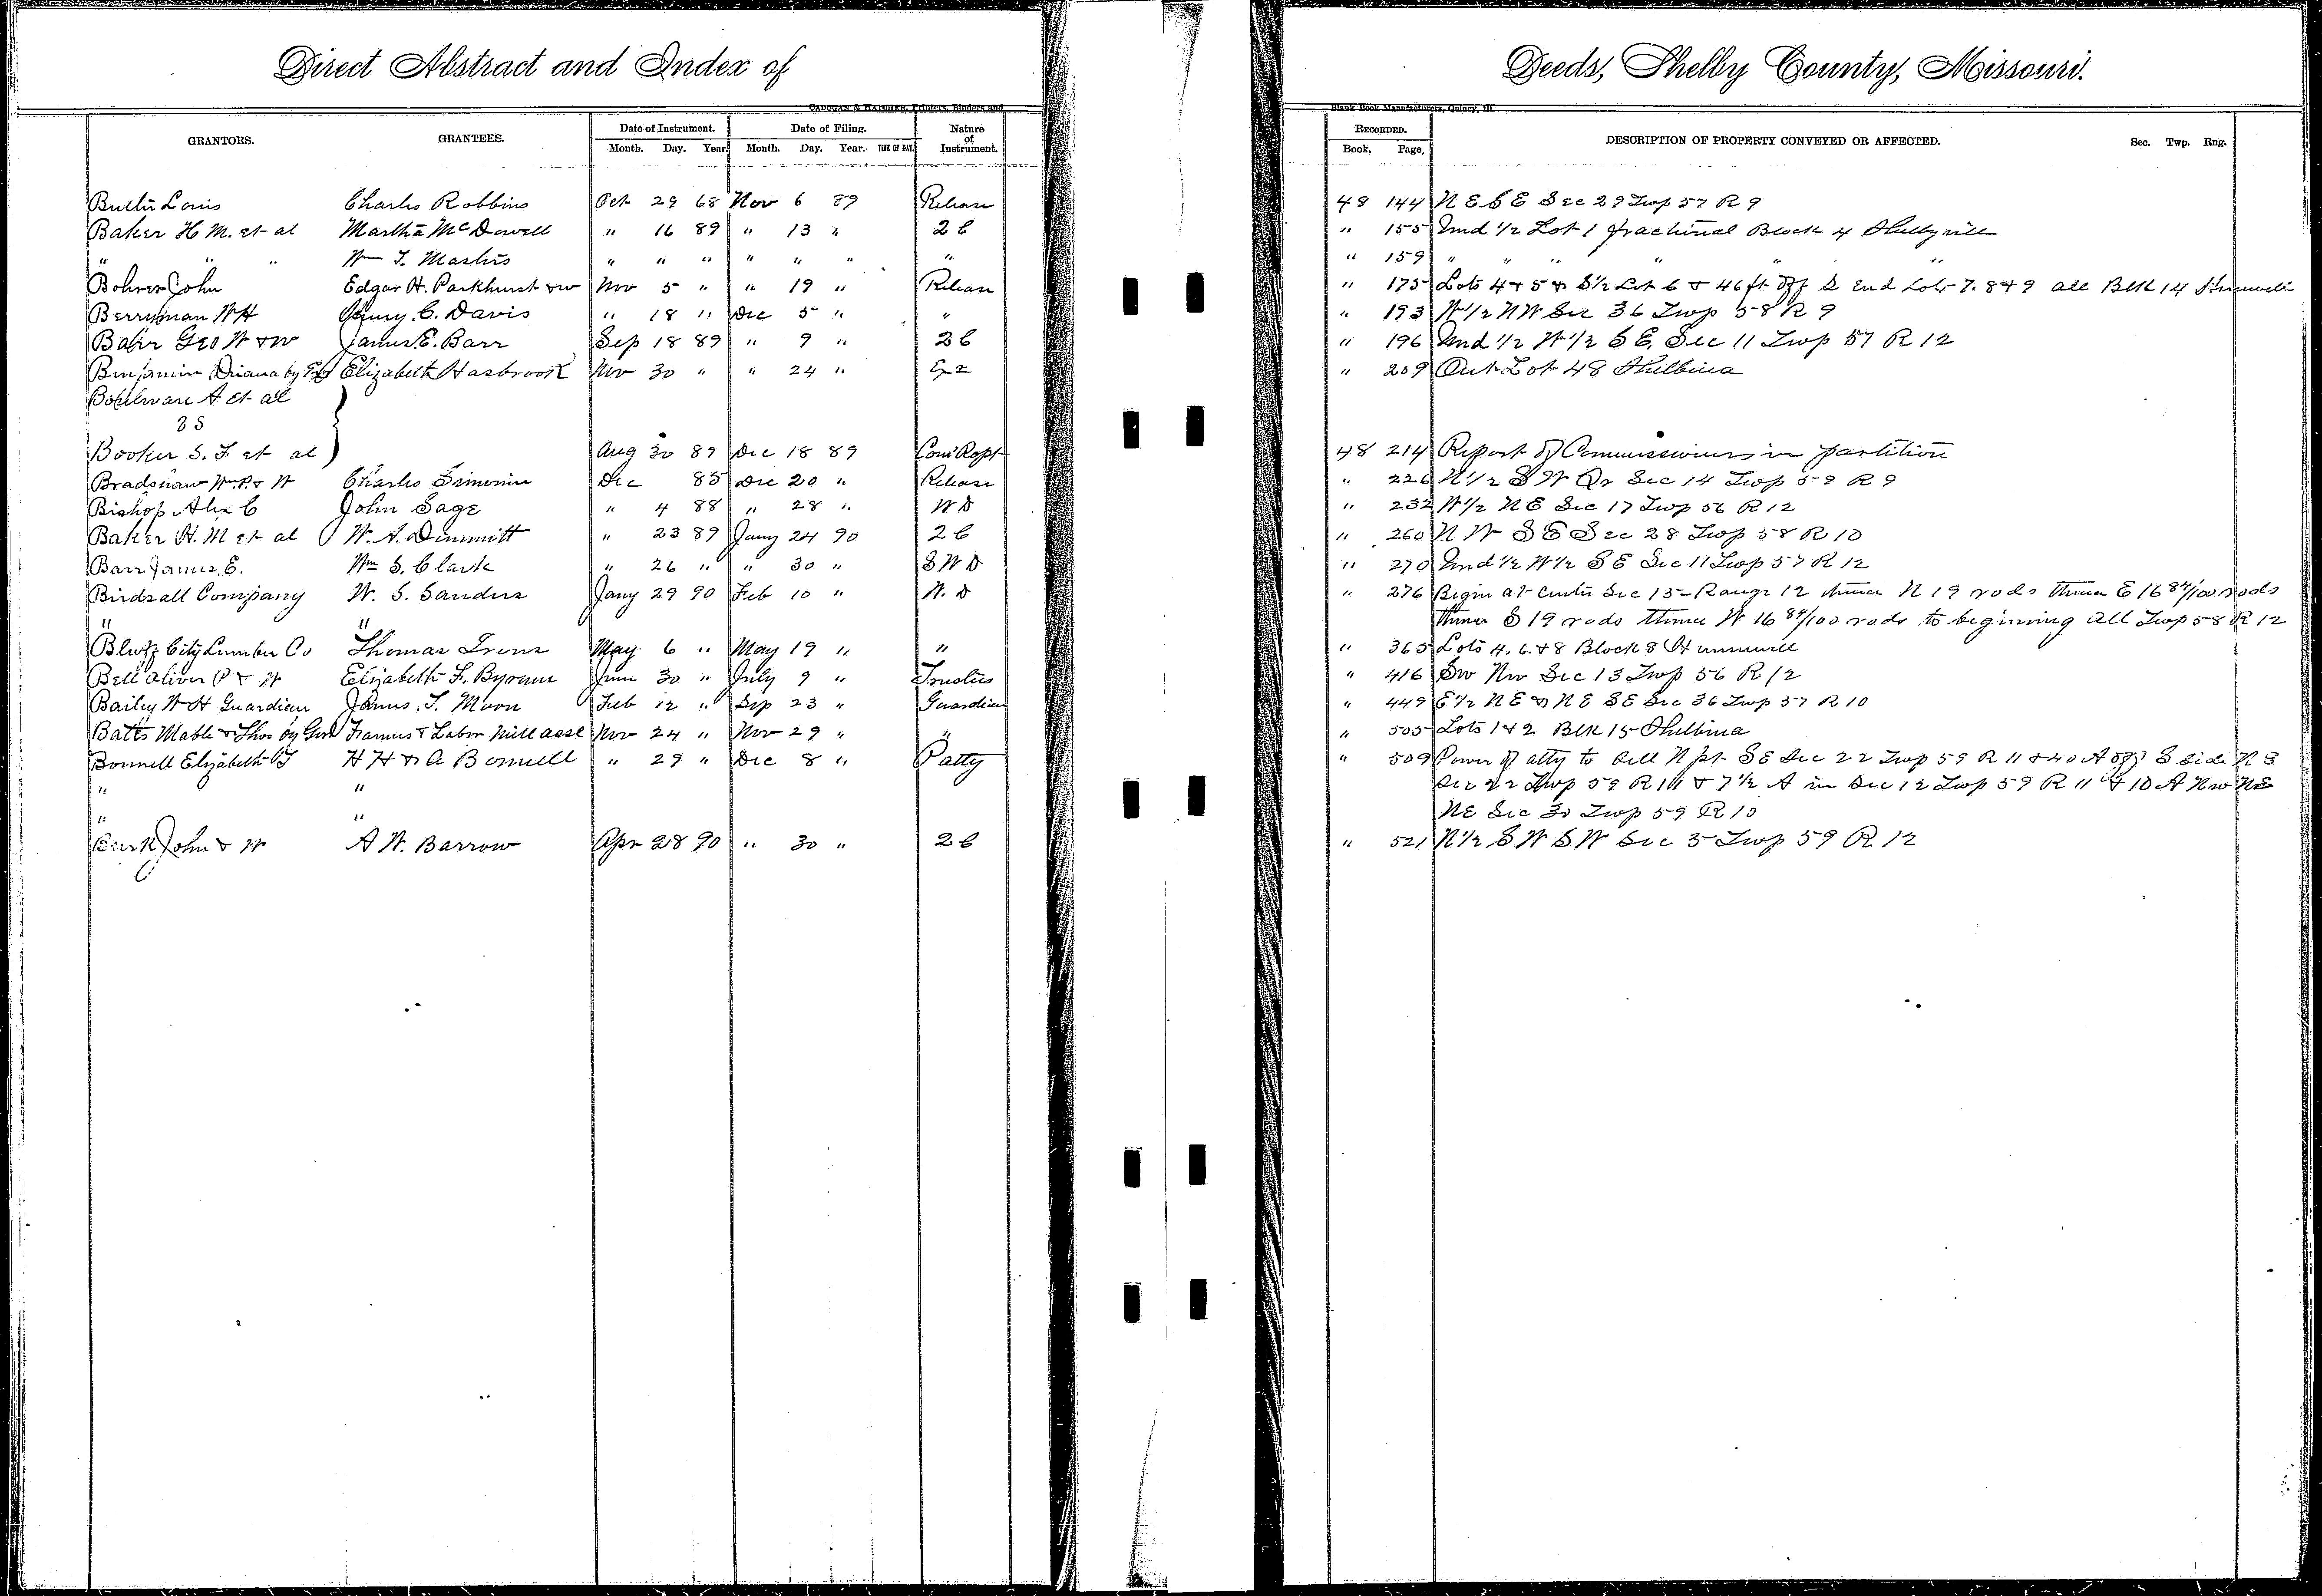 Direct Abstract and Index of Deeds, Shelby County, Missouri.
CADOGAN & HATCHER, Printers, Binders and Blank Book Manufacturers, Quincy, Ill.
GRANTORS. GRANTEES. Date of Instrument. Date of Filing. Nature of Instrument. RECORDED. DESCRIPTION OF PROPERTY CONVEYED OR AFFECTED. Sec. Twp. Rng.
Month. Day. Year. Month. Day. Year. TIME OF DAY. Book. Page.
Butler Louis Charles Robbins Oct 29 68 Nov 6 89 Release 48 144 N E S E Sec 29 Twp 57 R 9
Baker H M. et al Martha McDowell " 16 89 " 13 " 2 C " 155 Und 1/2 Lot 1 fractional Block 4 Shelbyville
" " " Wm T. Masters " " " " " " " " 159 " " " " "
Bohrer John Edgar H. Parkhurst & w Nov 5 " " 19 " Release " 175 Lots 4 & 5 & S 1/2 Lot 6 & 46 ft off S End Lots 7. 8 & 9 all Blk 14
Berryman W H Henry C. Davis " 18 " Dec 5 " " " 193 W 1/2 N W Sec 36 Twp 58 R 9
Geo W & W James E. Barr Sep 18 89 " 9 " 2 C " 196 Und 1/2 W 1/2 S E. Sec 11 Twp 57 R 12
Benjamin Diana by Elizabeth Hasbrook Nov 30 " " 24 " " 209 Out Lot 48 Shelbina
Boulware A et al
Booker S. F. et al Aug 30 89 Dec 18 89 Com Rept 48 214 Report of Commissioners in partition
Bradshaw W. P. & W Charles Simonin Dec 85 Dec 20 " Release " 226 N 1/2 S W Qr Sec 14 Twp R 9
Bishop Alex C John Sage " 4 88 " 28 " W D " 232 W 1/2 N E Sec 17 Twp 56 R 12
Baker H. M et al W. A. Dimmitt " 23 89 Jany 24 90 2 C " 260 N W S E Sec 28 Twp 58 R 10
Barr James. E. Wm S. Clark " 26 " " 30 " S W D " 270 Und 1/2 W 1/2 S E Sec 11 Twp 57 R 12
Birdsall Company W. S. Sanders Jany 29 90 Feb 10 " W. D " 276 Begin at Center Sec 15 Range 12 thence N 19 rods thence E 16 84/100 rods
" " thence S 19 rods thence W 16 84/100 rods to beginning all Twp 58 R 12
Bluff City Lumber Co Thomas Irons May 6 " May 19 " " " 365 Lots 4. 6. & 8 Block 8 Hunnewell
Bell Oliver P & W Elizabeth F. Byrum June 30 " July 9 " Trustees " 416 Sw Nw Sec 13 Twp 56 R 12
Bailey W H Guardian James. T. Moon Feb 12 " Sep 23 " Guardian " 449 E 1/2 N E & N E S E Sec 36 Twp 57 R 10
Batts Mable & Thos by Farmers & Labor Mill asse Nov 24 " Nov 29 " " " 505 Lots 1 & 2 Blk 15 Shelbina
Bonnell Elizabeth H H & A Bonnell " 29 " Dec 8 " P atty " 509 Power of atty to Sell N pt S E Sec 22 Twp 59 R 11 & 40 A off S Side N E
" " Sec 22 Twp 59 R 11 & 7 1/2 A in Sec 12 Twp 59 R 11 & 10 A Nw
" " NE Sec 30 Twp 59 R 10
John & W A W. Barrow Apr 28 90 " 30 " 2 C " 521 N 1/2 S W S W Sec 5 Twp 59 R 12